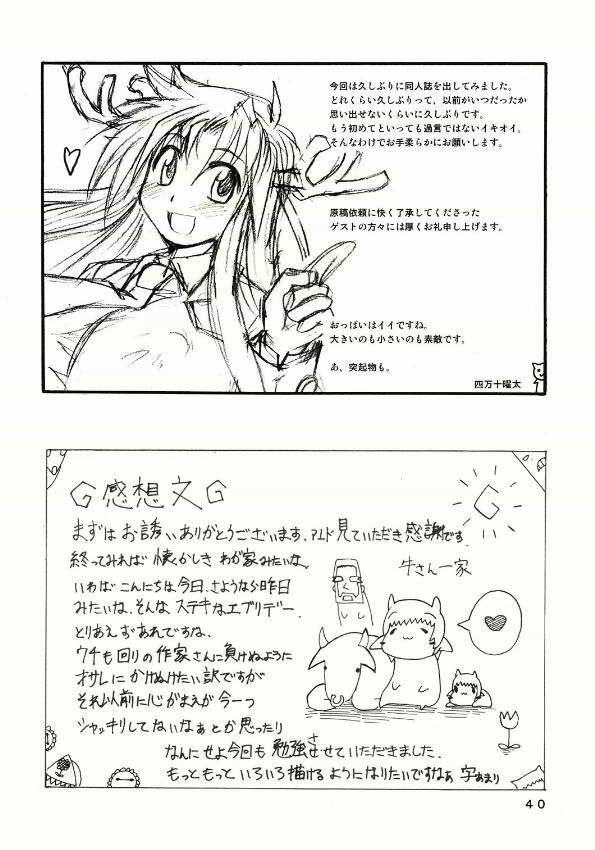 今回は久しぶりに同人誌を出してみました。
どれくらい久しぶりって、以前がいつだったか
思い出せないくらいに久しぶりです。
もう初めてといっても過言ではないイキオイ。
そんなわけでお手柔らかにお願いします。
原稿依頼に快く了承してくださった
ゲストの方々には厚くお礼申し上げます。
おっぱいはイイですね。
大きいのも小さいのも素敵です。
あ、突起物も。
四万十曜太
G感想文G
まずはお誘いありがとうございます.アンド見ていただき感謝です
終ってみれば 懐かしき わが家みたいな、
いわば こんにちは今日、さようなら昨日
みたいな、そんな ステキなエブリデー.
とりあえずあれですね、
ウチも回りの作家さんに負けぬように
オサレにかけぬけたい訳ですが
それ以前に心がまえが今一つ
シャッキリしてないなぁとか思ったり
なんにせよ今回も勉強させせていただきました.
もっともっといろいろ描けるようになりたいですなぁ 字あまり
G
牛さん一家
40